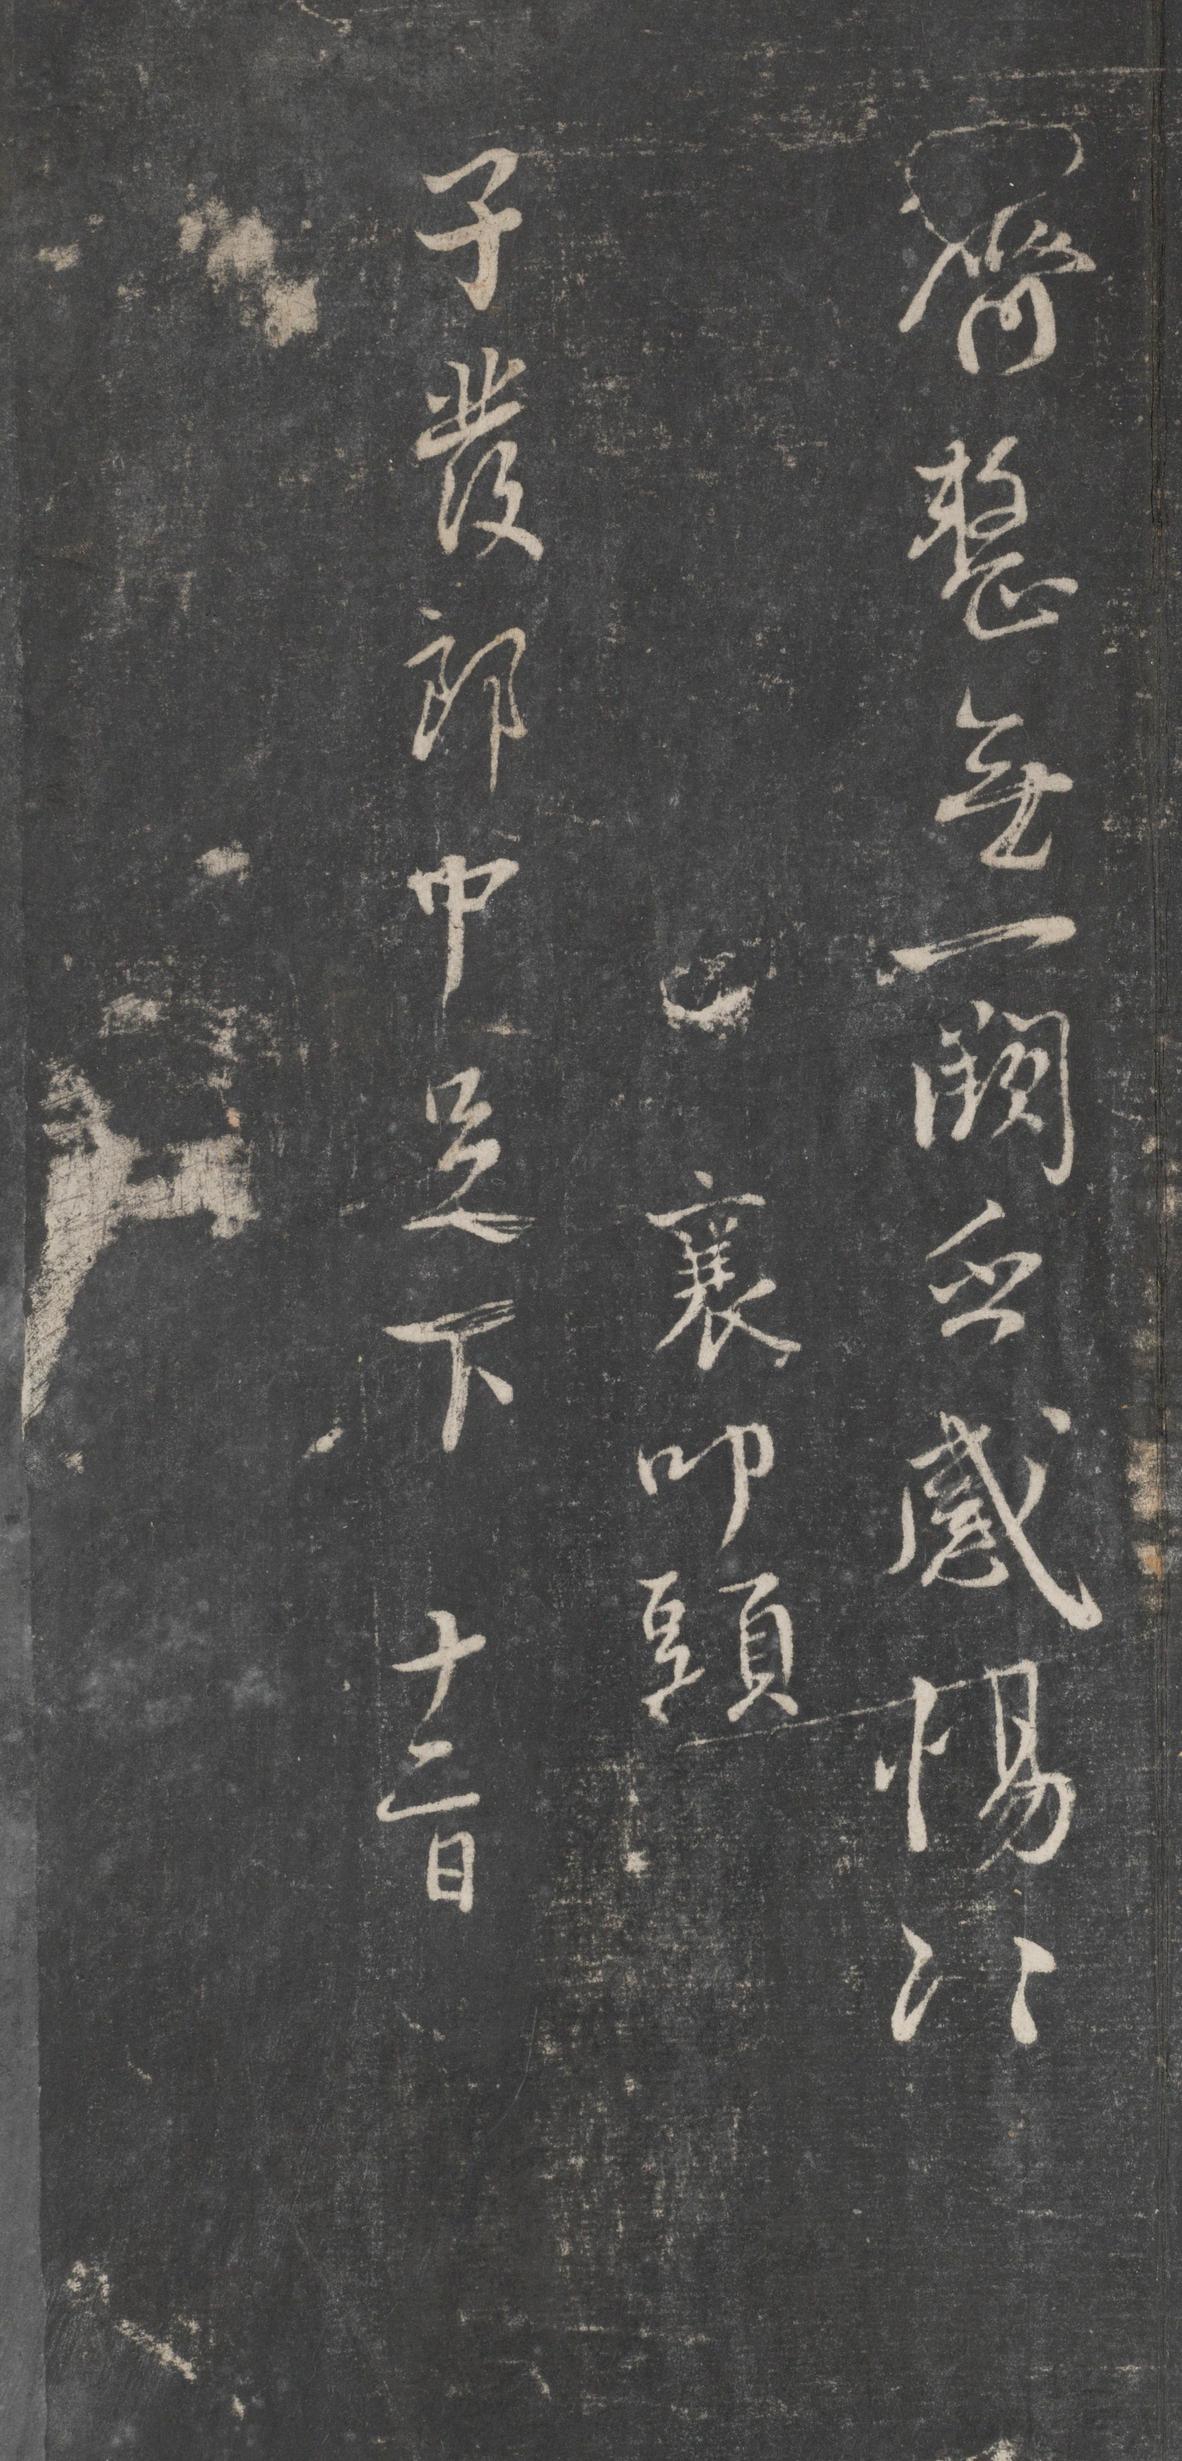 齊整無一闕
感惕
襄叩頭
子發郎中足下 十二日